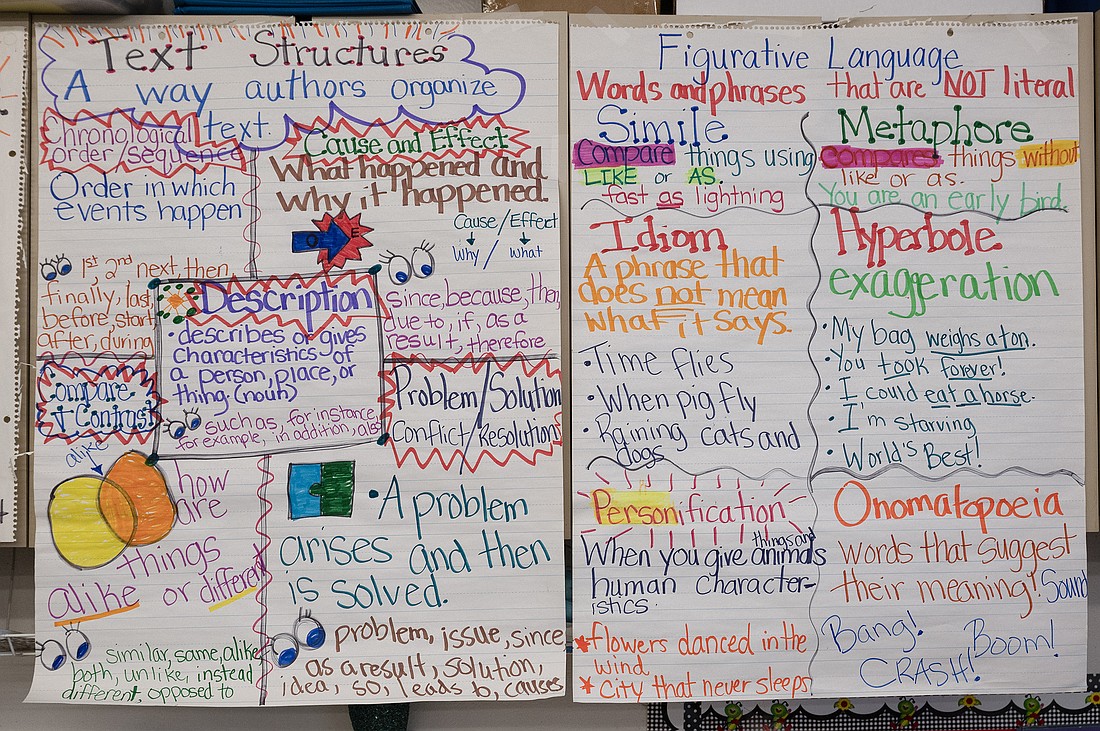 Text Structures
A way authors organize
text.
Chronological
order/sequence
Order in which
events happen
1st, 2nd next, then
finally, last,
before, start
after, during
Cause and Effect
What happened and
why it happened.
Cause/Effect
Why / what
C E
since, because, then,
due to, if, as a
result, therefore
Description
• describes or gives
characteristics of
a person, place, or
thing. (noun)
such as, for instance,
for example, in addition, also
Compare
+ Contrast
alike
how
are
things
alike or different
similar, same, alike
both, unlike, instead
different, opposed to
Problem/Solution
Conflict/Resolution
• A problem
arises and then
is solved.
problem, issue, since
as a result, solution,
idea, so, leads to, causes
Figurative Language
Words and phrases that are NOT literal
Simile
Compare things using
LIKE or AS.
fast as lightning
Metaphore
compares things without
like or as.
You are an early bird.
Idiom
A phrase that
does not mean
what it says.
• Time flies
• When pig fly
• Raining cats and
dogs
Hyperbole
exaggeration
• My bag weighs a ton.
• You took forever!
• I could eat a horse.
• I'm starving
• World's Best!
Personification
things and
When you give animals
human character-
istics.
flowers danced in the
wind.
City that never sleeps
Onomatopoeia
words that suggest
their meaning! Sound
Bang! Boom!
CRASH!